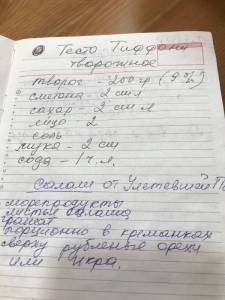 Тесто Тиффани
творожное
творог - 200 гр (9%)
сметана - 2 ст л
сахар - 2 ст л
яйцо 2
соль
мука - 2 ст
сода - 1 ч л.
Салат от Улетевшей
морепродукты
листья салата
гранат
порционно в креманках
сверху рубленые орехи
или икра.